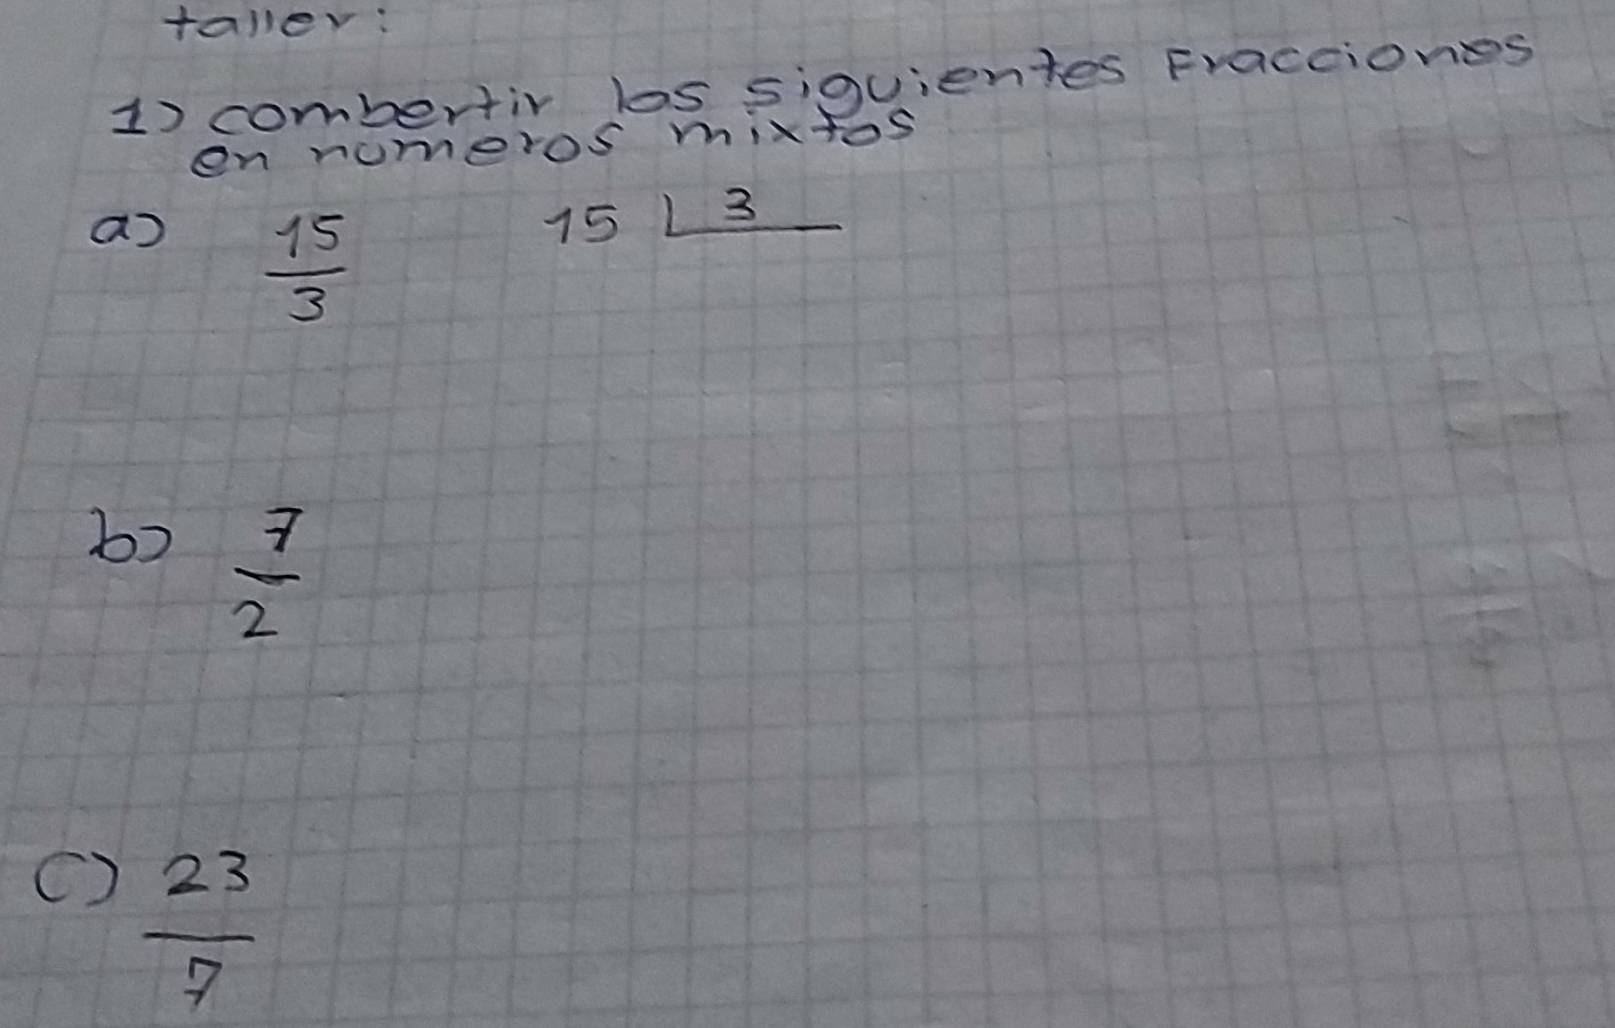 taller:
1) combertir las siguientes Fracciones
en numeros mixtos
a) 15/3 15 | 3
b) 7/2
c) 23/7